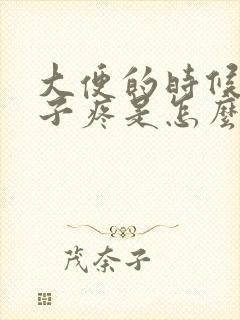 大便的時候
子疼是怎麼
茂奈子